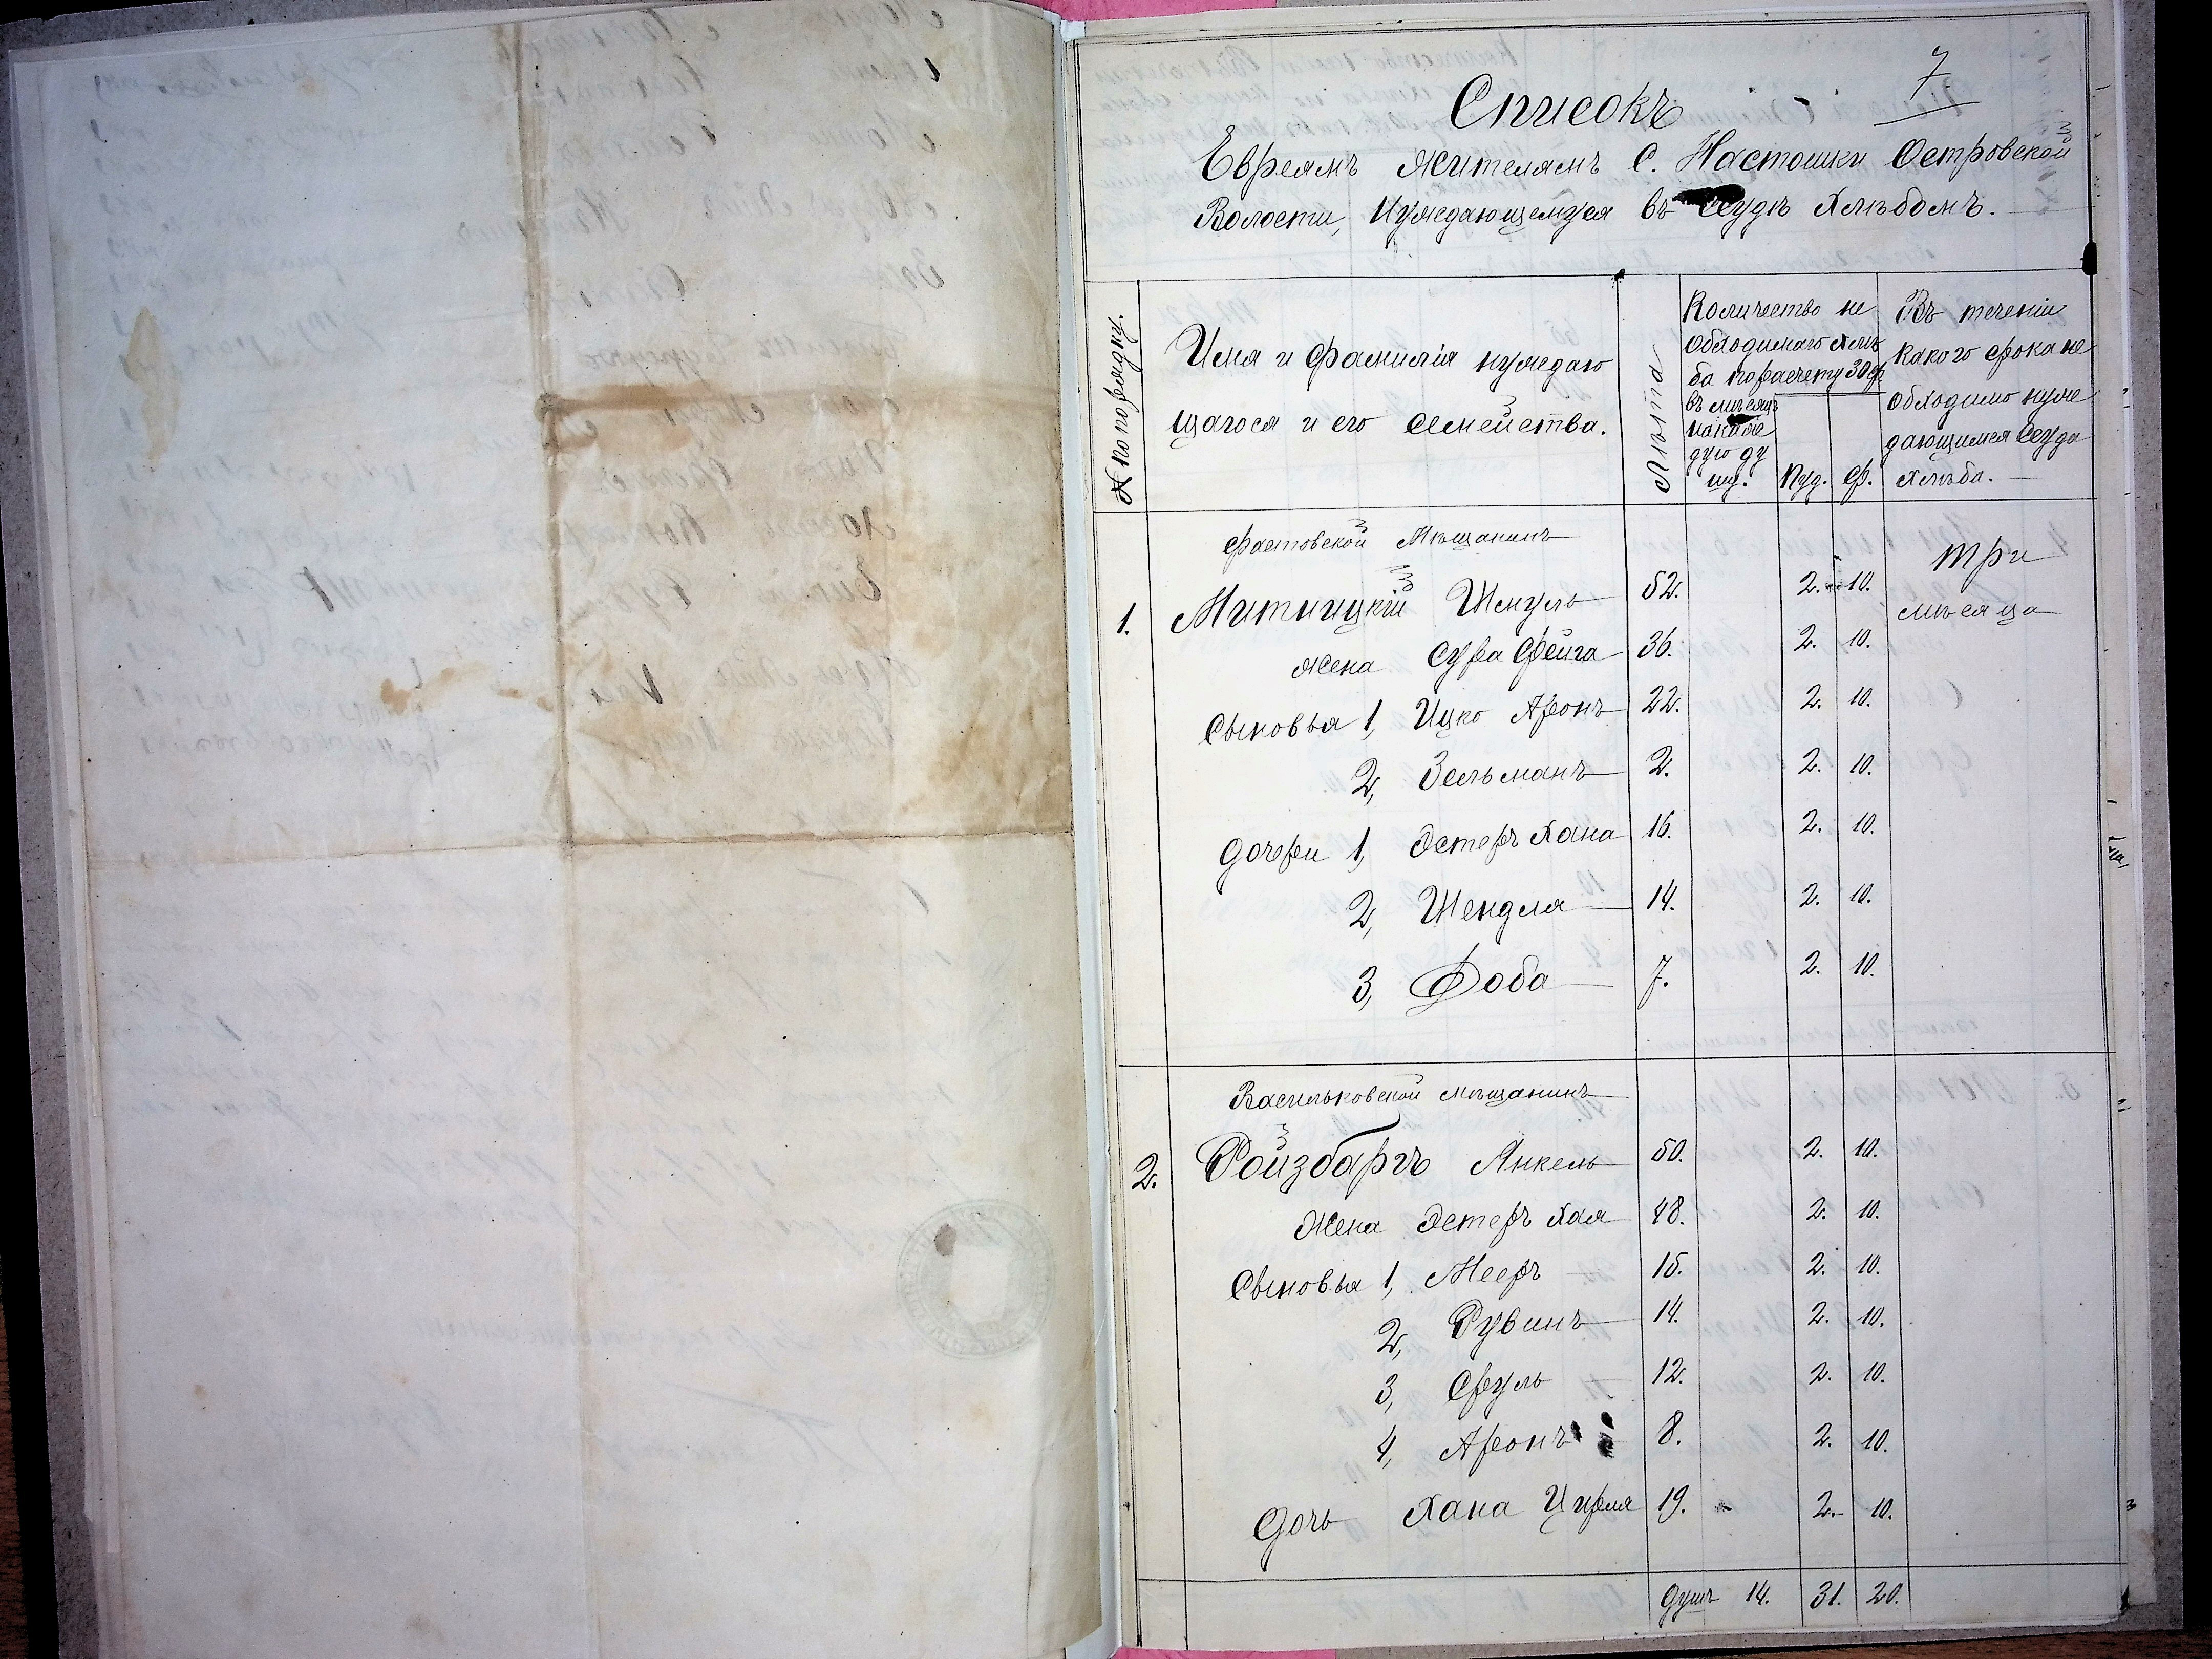 7.
Списокъ
Евреямъ жителямъ с. Настошки Островской
Волости, нуждающемуся въ ссудѣ хлѣбомъ.
№ по порядку.
Имя и фамилія нуждаю
щагося и его семейства.
Лѣта
Количество не
обходимаго хлѣ
ба по расчету 30 ф.
въ мѣсяцъ
на каж
дую ду
шу.
Пуд.
Ф.
Въ теченіи
какого срока не
обходимо нуж
дающимся ссуда
хлѣба.
Фастовской Мѣщанинъ
1. Митницкій Шмуль 52. 2. 10. три
мѣсяца
жена Сура Фейга 36. 2. 10.
Сыновья 1, Ицко Аронъ 22. 2. 10.
2, Зельманъ 2. 2. 10.
Дочери 1, Эстеръ Хана 16. 2. 10.
2, Шендля 14. 2. 10.
3, Доба 7. 2. 10.
Васильковской мѣщанинъ
2. Ройзбаргъ Янкель 50. 2. 10.
Жена Эстеръ Хая 48. 2. 10.
Сыновья 1, Мееръ 15. 2. 10.
2, Рувинъ 14. 2. 10.
3, Сруль 12. 2. 10.
4, Аронъ 8. 2. 10.
Дочь Хана Цирля 19. 2. 10.
Душъ 14. 31. 20.